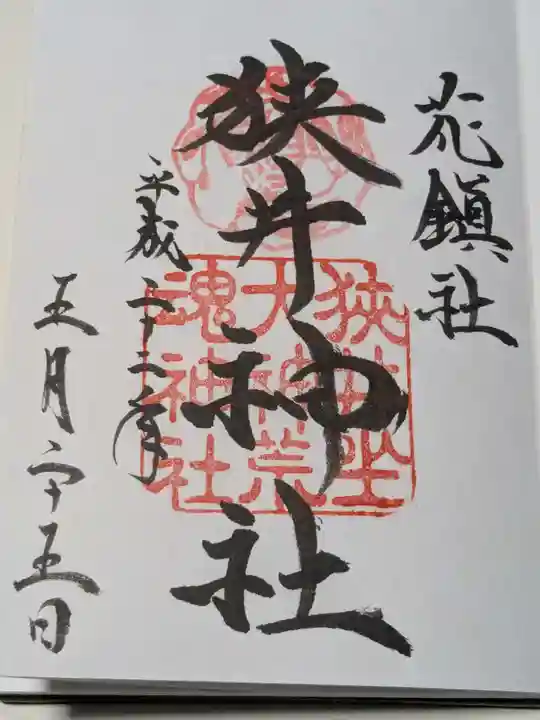 花鎮社
狭井神社
狭井坐
大神荒
魂神社
平成二十二年
五月二十五日